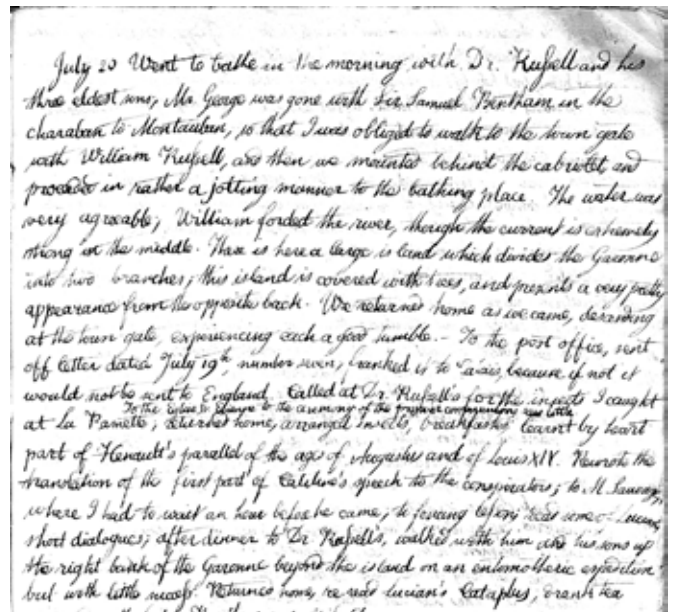 July 20 Went to bathe in the morning with Dr. Russell and his
three eldest sons, Mr. George was gone with Sir Samuel Bentham in the
charaban to Montauban, so that I was obliged to walk to the town gate
with William Russell, and then we mounted behind the cabriolet, and
proceeded in rather a jolting manner to the bathing place. The water was
very agreeable; William forded the river, though the current is extremely
strong in the middle. There is here a large island which divides the Garonne
into two branches; this island is covered with trees, and presents a very pretty
appearance from the opposite bank. We returned home as we came, descending
at the town gate, experiencing each a good tumble. – To the post office, sent
off letter dated July 19th, number seven, franked it to Calais, because if not it
would not be sent to England. Called at Dr. Russell's for the insects I caught
To the to the of the
at La ; returned home, arranged insects, breakfasted learnt by heart
part of Henault's parallel of the age of Augustus and of Louis XIV. Rewrote the
translation of the first part of Catiline's speech to the conspirators; to M. Sauvage,
where I had to wait an hour before he came; to fencing before read some of Lucian's
short dialogues; after dinner to Dr Russell's, walked with him and his sons up
the right bank of the Garonne beyond the island on an entomological expedition
but with little success. Returned home, re read Lucian's Cataplus, drank tea